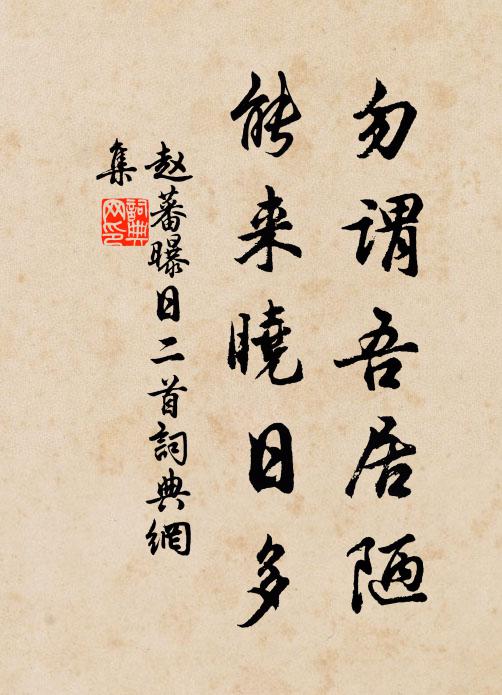 勿谓吾居陋
能来曉日多
赵蕃曝日二首詞典網
集
詞典
网印